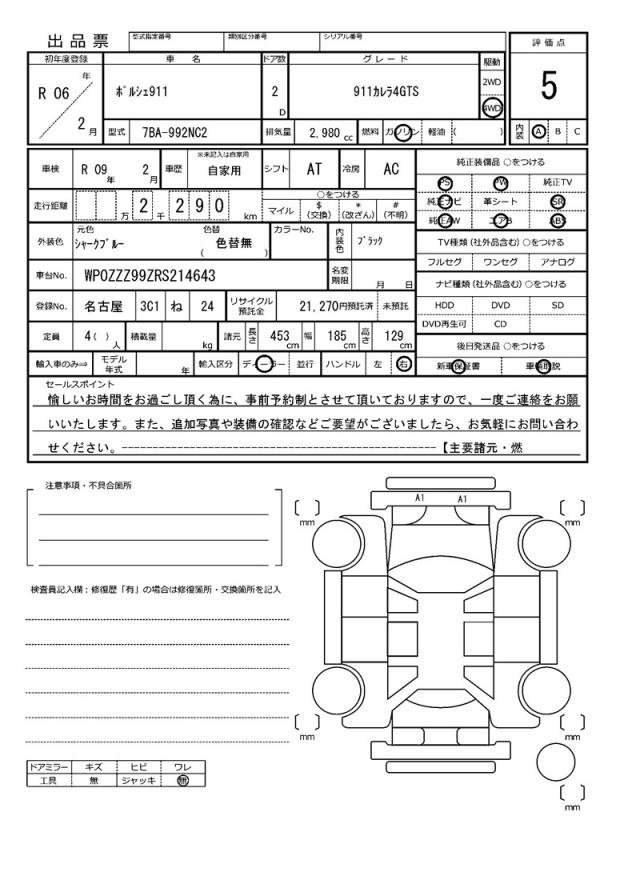 出品票
型式指定番号 類別区分番号 シリアル番号
評価点
5
内装 A B C
初年度登録 車名 ドア数 グレード 駆動
R 06 年 2 月
ポルシェ911 2 D 911カレラ4GTS
2WD
4WD
型式 7BA-992NC2 排気量 2,980 cc 燃料 ガソリン 軽油 ( )
車検 R 09 年 2 月 車歴 ※未記入は自家用 自家用 シフト AT 冷房 AC
走行距離 万 2 千 2 9 0 km
○をつける
マイル $ (交換) * (改ざん) # (不明)
外装色 元色 シャークブルー 色替 色替無 ( ) カラーNo. 内装色 ブラック
車台No. WP0ZZZ99ZRS214643 名変期限 月 日
登録No. 名古屋 301 ね 24 リサイクル預託金 21,270円預託済 未預託
定員 4 ( ) 人 積載量 kg 諸元 長さ 453 cm 幅 185 cm 高さ 129 cm
輸入車のみ⇒ モデル年式 年 輸入区分 ディーラー 並行 ハンドル 左 右
純正装備品 ○をつける
PS PW 純正TV
純正ナビ 革シート SR
純正AW エアB ABS
TV種類 (社外品含む) ○をつける
フルセグ ワンセグ アナログ
ナビ種類 (社外品含む) ○をつける
HDD DVD SD
DVD再生可 CD
後日発送品 ○をつける
新車保証書 車輌取説
セールスポイント
愉しいお時間をお過ごし頂く為に、事前予約制とさせて頂いておりますので、一度ご連絡をお願
いいたします。また、追加写真や装備の確認などご要望がございましたら、お気軽にお問い合わ
せください。------------------------------------------------【主要諸元・燃
注意事項・不具合箇所
検査員記入欄：修復歴「有」の場合は修復箇所・交換箇所を記入
A1 A1
[ ] mm
[ ] mm
[ ] mm
[ ] mm
[ ] mm
ドアミラー キズ ヒビ ワレ
工具 無 ジャッキ 無